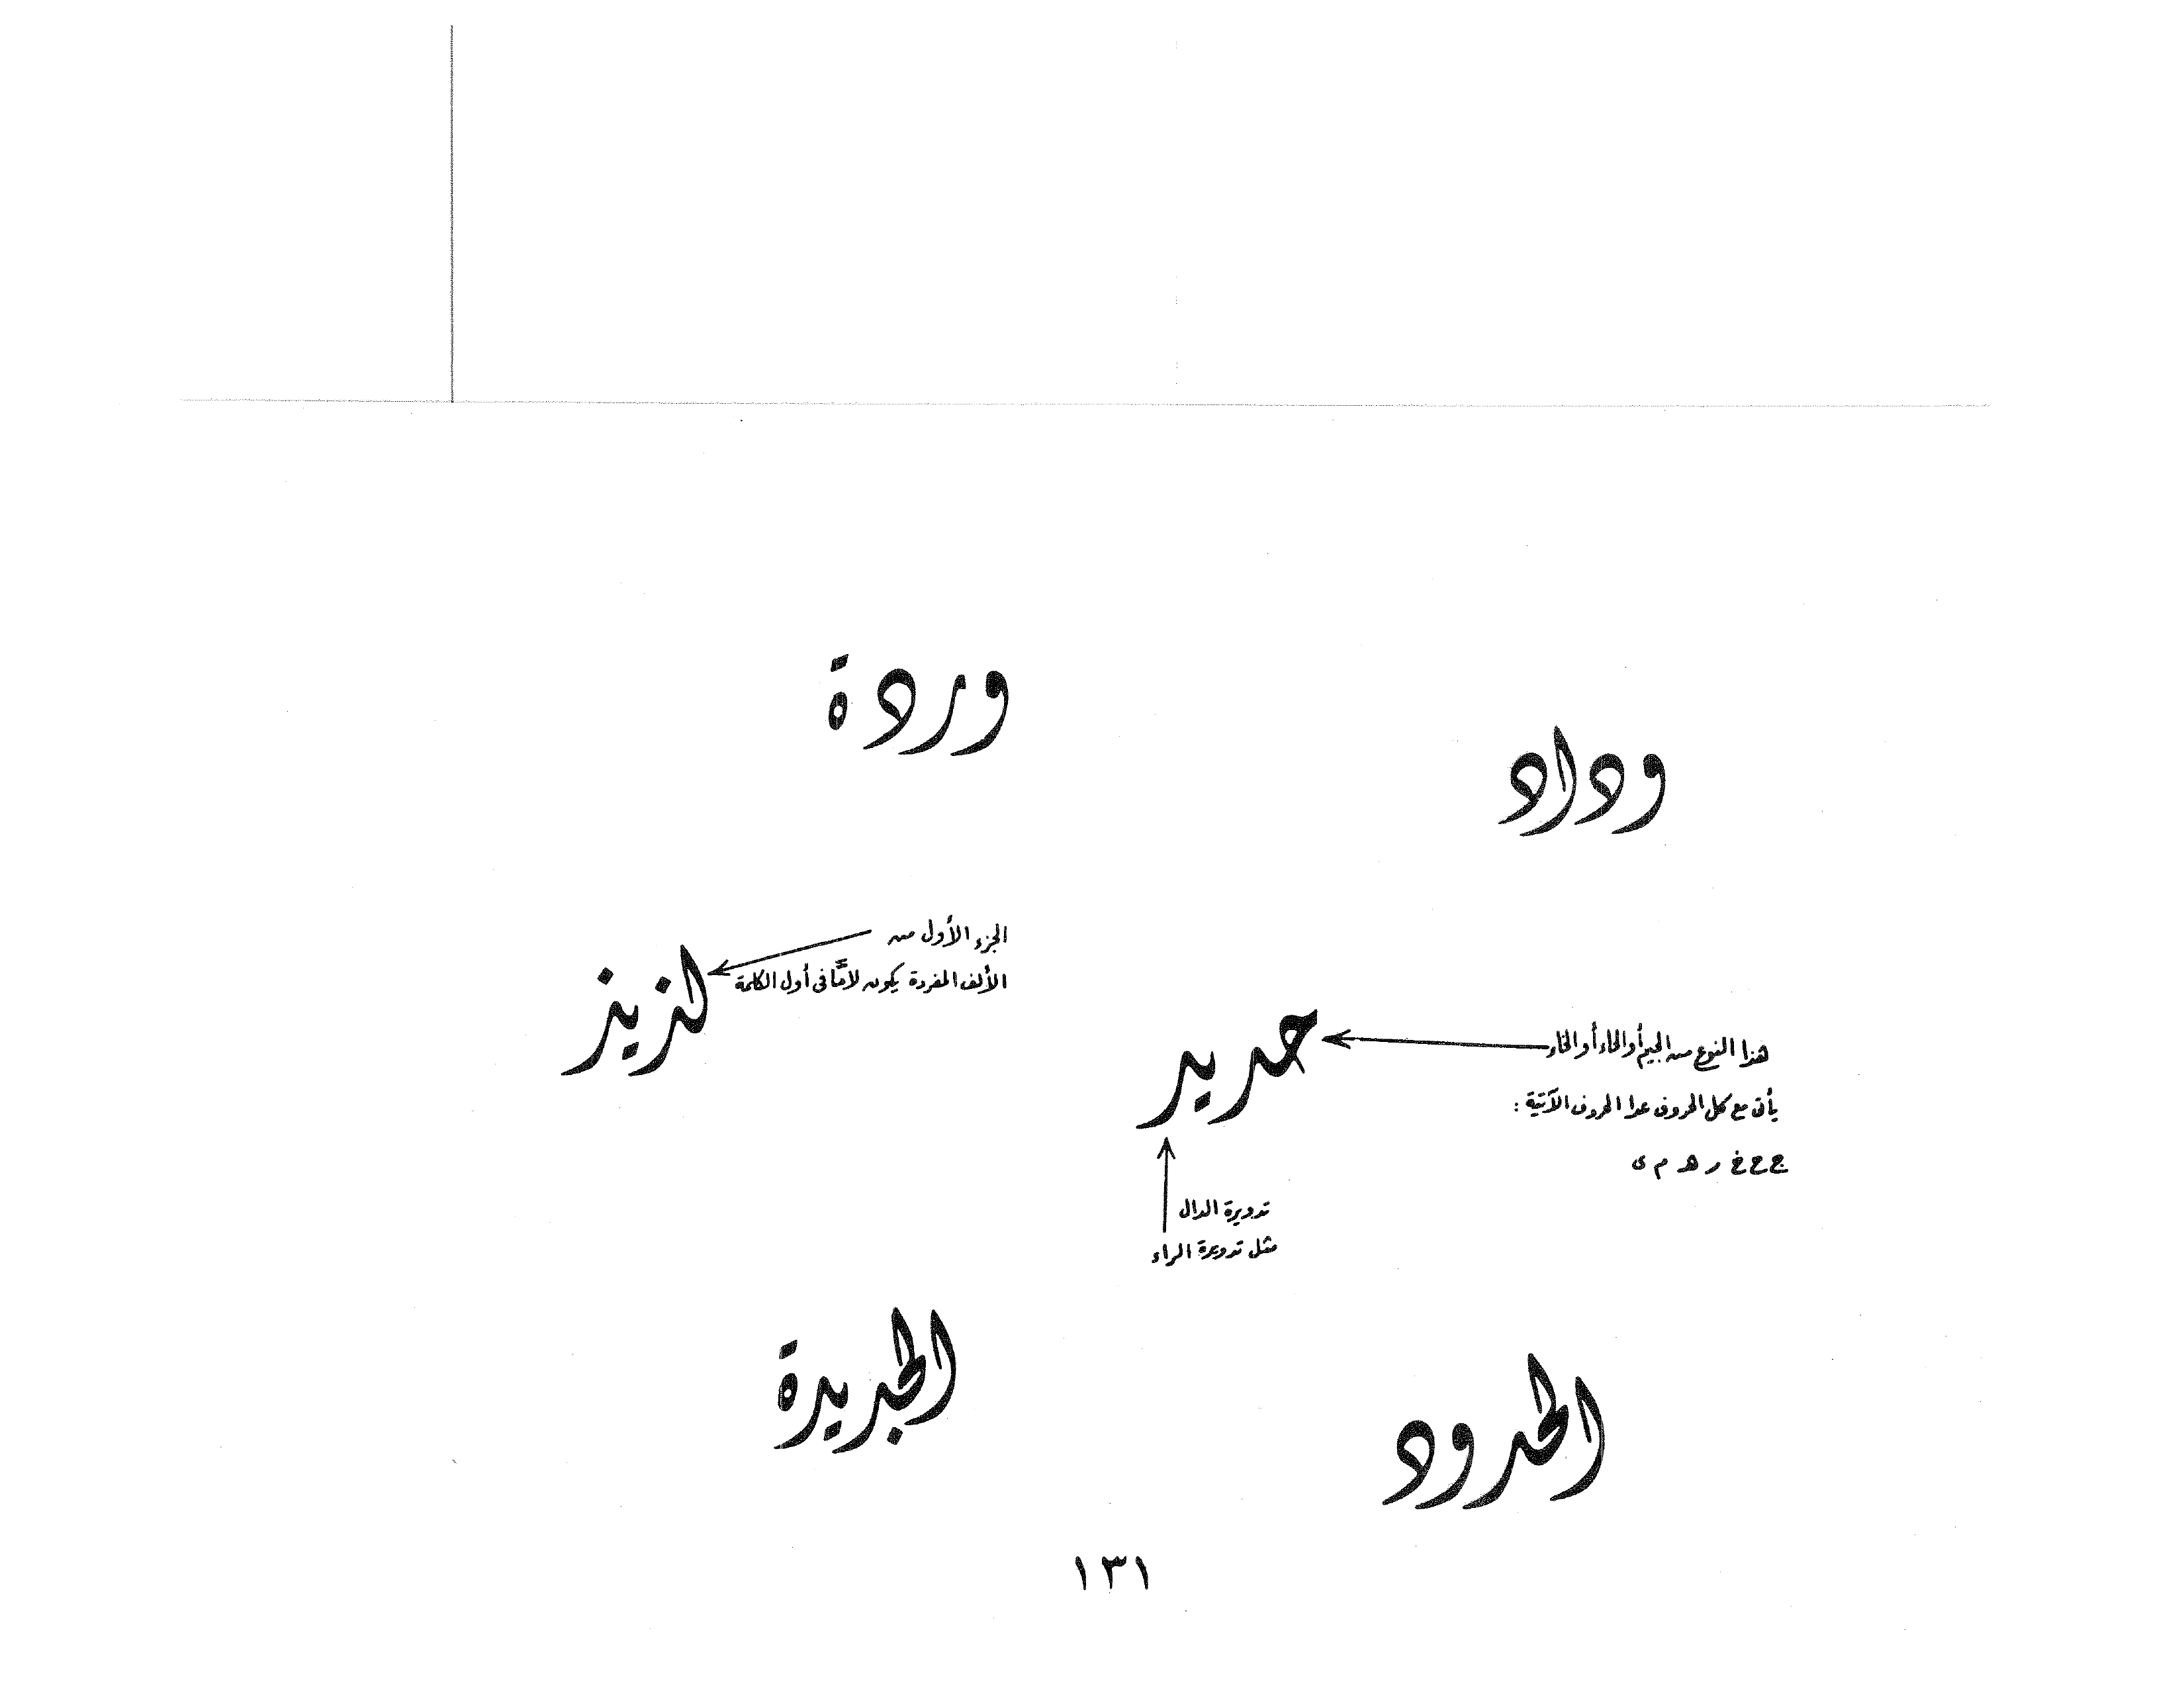 وردة
وداد
الجزء الأول من
الألف المفردة يكون لامًا في أول الكلمة
لذيذ
هذا النوع من الجيم أو الحاء أو الخاء
يأتى مع كل الحروف عدا الحروف الآتية :
ج ح خ ر هـ م ى
حديد
تدويرة الدال
مثل تدويرة الراء
الحدود
الجديدة
١٣١